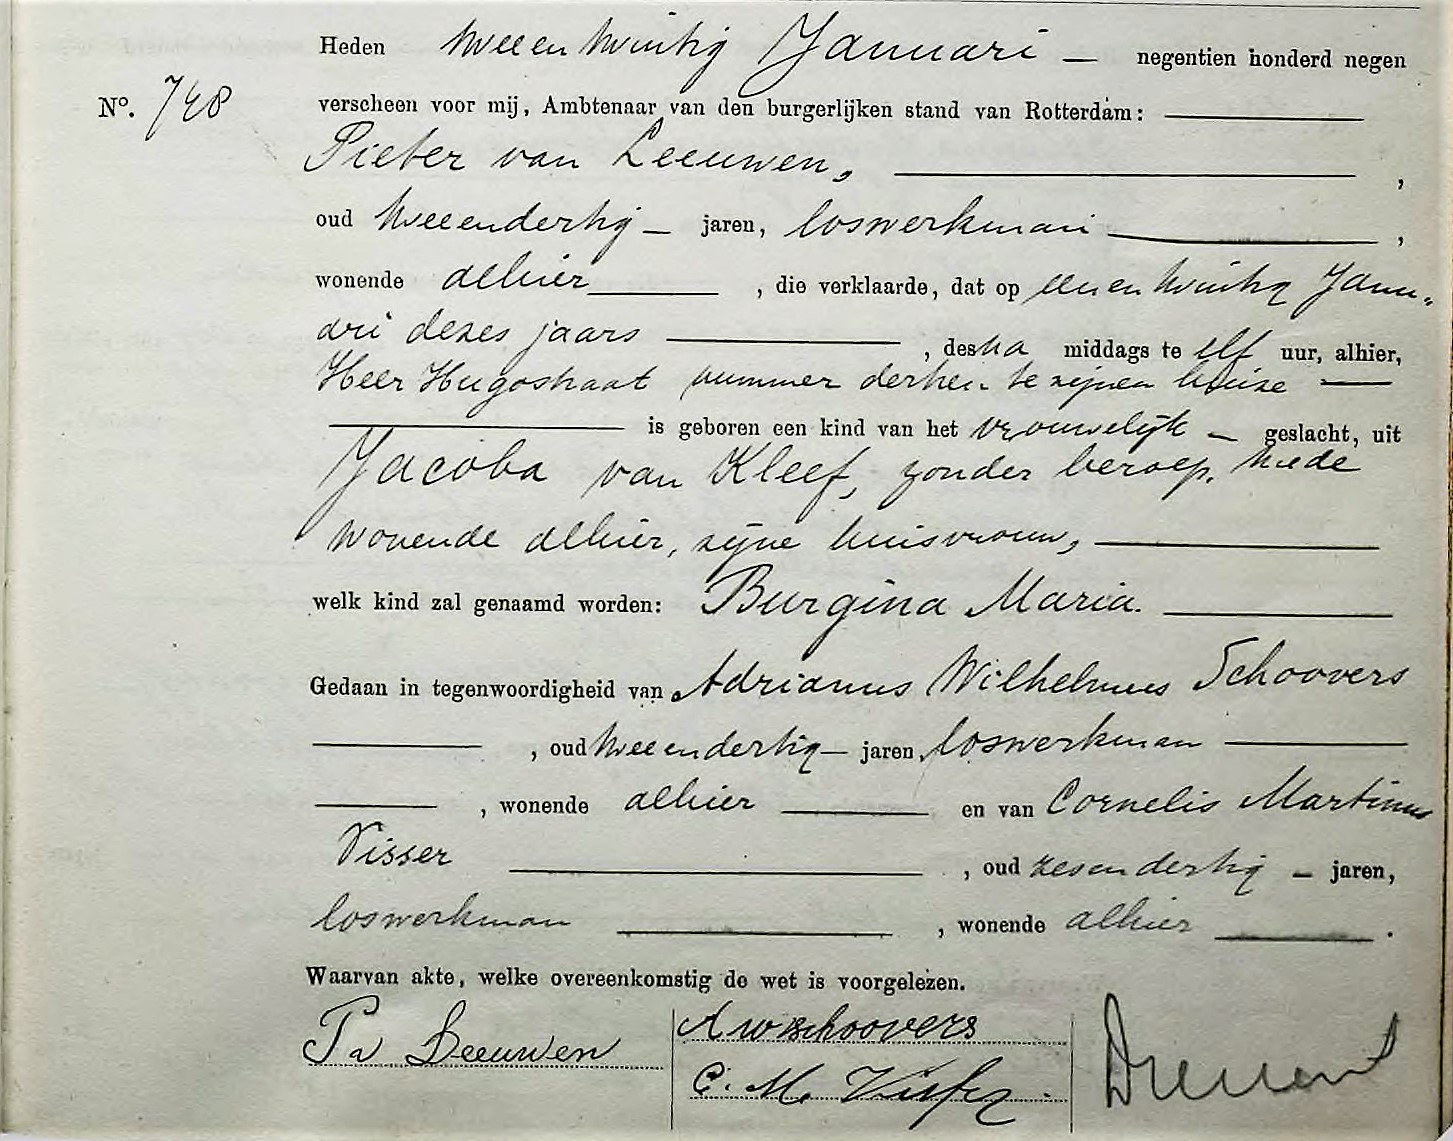 Heden tweeentwintig Januari — negentien honderd negen
No. 748 verscheen voor mij, Ambtenaar van den burgerlijken stand van Rotterdam:
Pieter van Leeuwen, ,
oud tweeendertig — jaren, loswerkman ,
wonende alhier , die verklaarde, dat op eenentwintig Janu-
ari dezes jaars , des na middags te elf uur, alhier,
Heer Hugostraat nummer dertien te zijnen huize
is geboren een kind van het vrouwelijk — geslacht, uit
Jacoba van Kleef, zonder beroep, mede
wonende alhier, zijne huisvrouw,
welk kind zal genaamd worden: Burgina Maria.
Gedaan in tegenwoordigheid van Adrianus Wilhelmus Schoovers
, oud tweeendertig — jaren, loswerkman
, wonende alhier en van Cornelis Martinus
Visser , oud zesendertig — jaren,
loswerkman , wonende alhier .
Waarvan akte, welke overeenkomstig de wet is voorgelezen.
P v Leeuwen
A W Schoovers
C. M. Visser